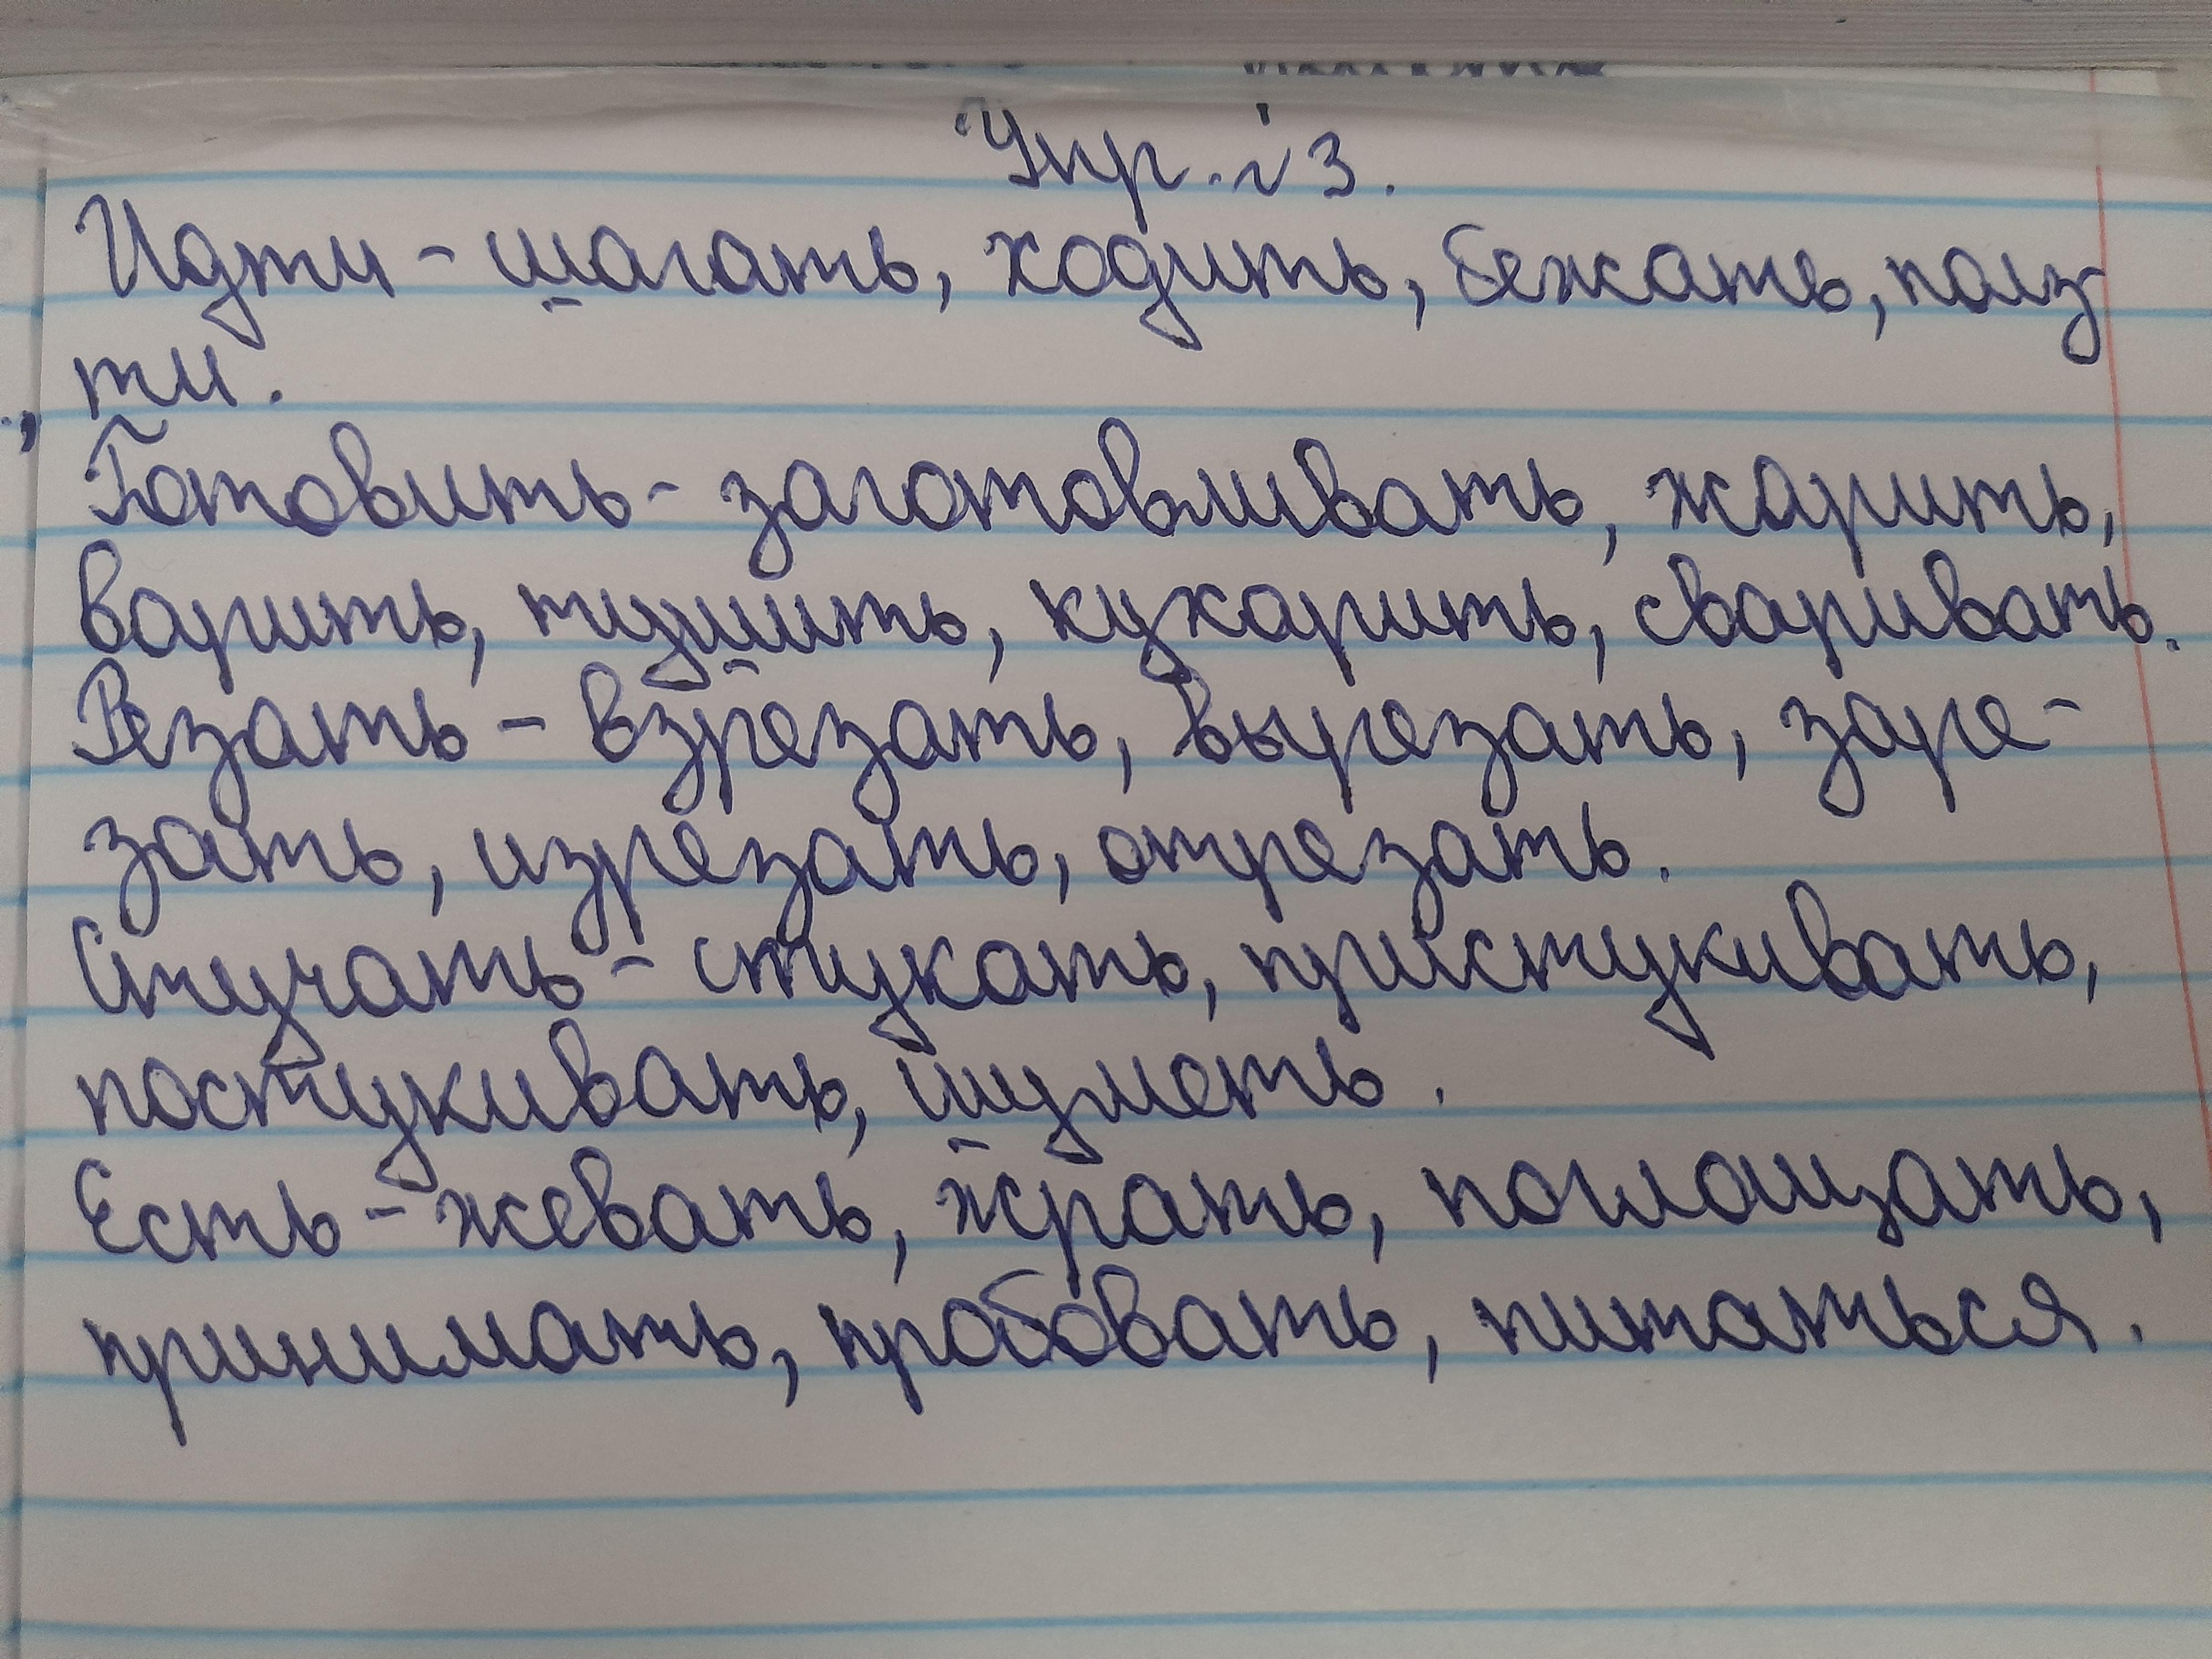 Упр. 3.
Идти - шагать, ходить, бежать, полз-
ти.
Готовить - заготовливать, жарить,
варить, тушить, кухарить, сваривать.
Резать - взрезать, вырезать, заре-
зать, изрезать, отрезать.
Стучать - стукать, пристукивать,
постукивать, шуметь.
Есть - жевать, жрать, поглощать,
принимать, пробовать, питаться.